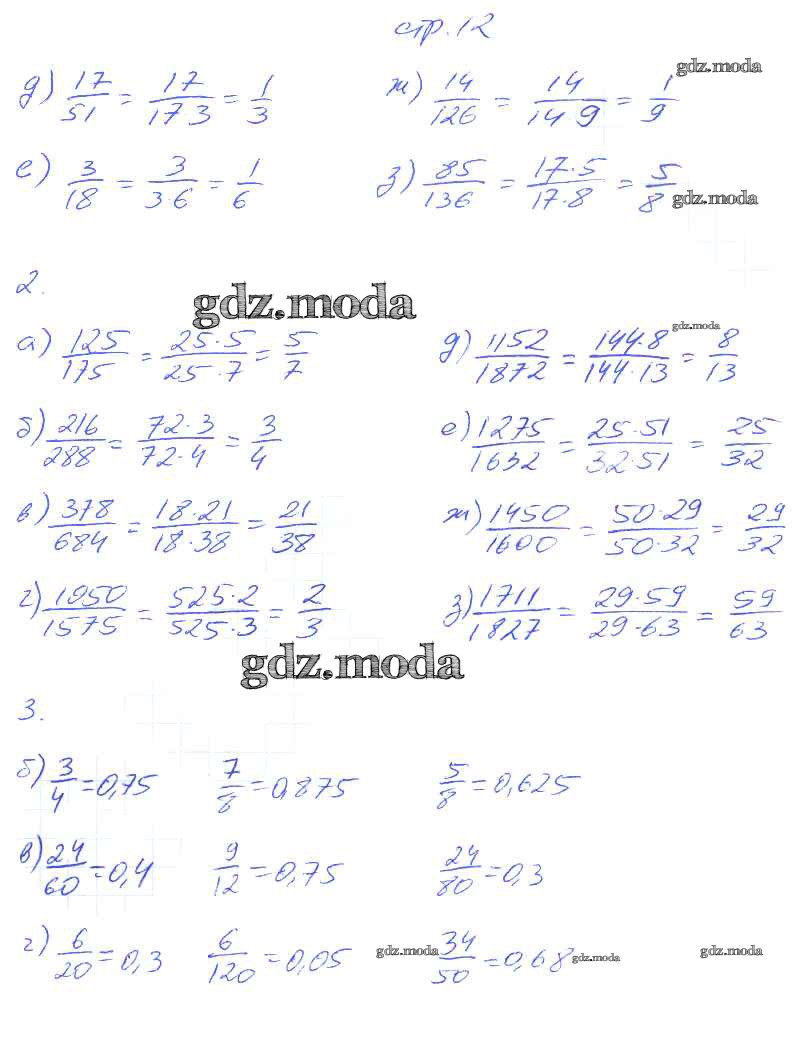 стр. 12
gdz.moda
д) 17/51 = 17/17·3 = 1/3 ж) 14/126 = 14/14·9 = 1/9
е) 3/18 = 3/3·6 = 1/6 з) 85/136 = 17·5/17·8 = 5/8
gdz.moda
2.
gdz.moda
gdz.moda
а) 125/175 = 25·5/25·7 = 5/7 д) 1152/1872 = 144·8/144·13 = 8/13
б) 216/288 = 72·3/72·4 = 3/4 е) 1275/1632 = 25·51/32·51 = 25/32
в) 378/684 = 18·21/18·38 = 21/38 ж) 1450/1600 = 50·29/50·32 = 29/32
г) 1050/1575 = 525·2/525·3 = 2/3 з) 1711/1827 = 29·59/29·63 = 59/63
gdz.moda
3.
б) 3/4 = 0,75 7/8 = 0,875 5/8 = 0,625
в) 24/60 = 0,4 9/12 = 0,75 24/80 = 0,3
г) 6/20 = 0,3 6/120 = 0,05 34/50 = 0,68
gdz.moda gdz.moda gdz.moda